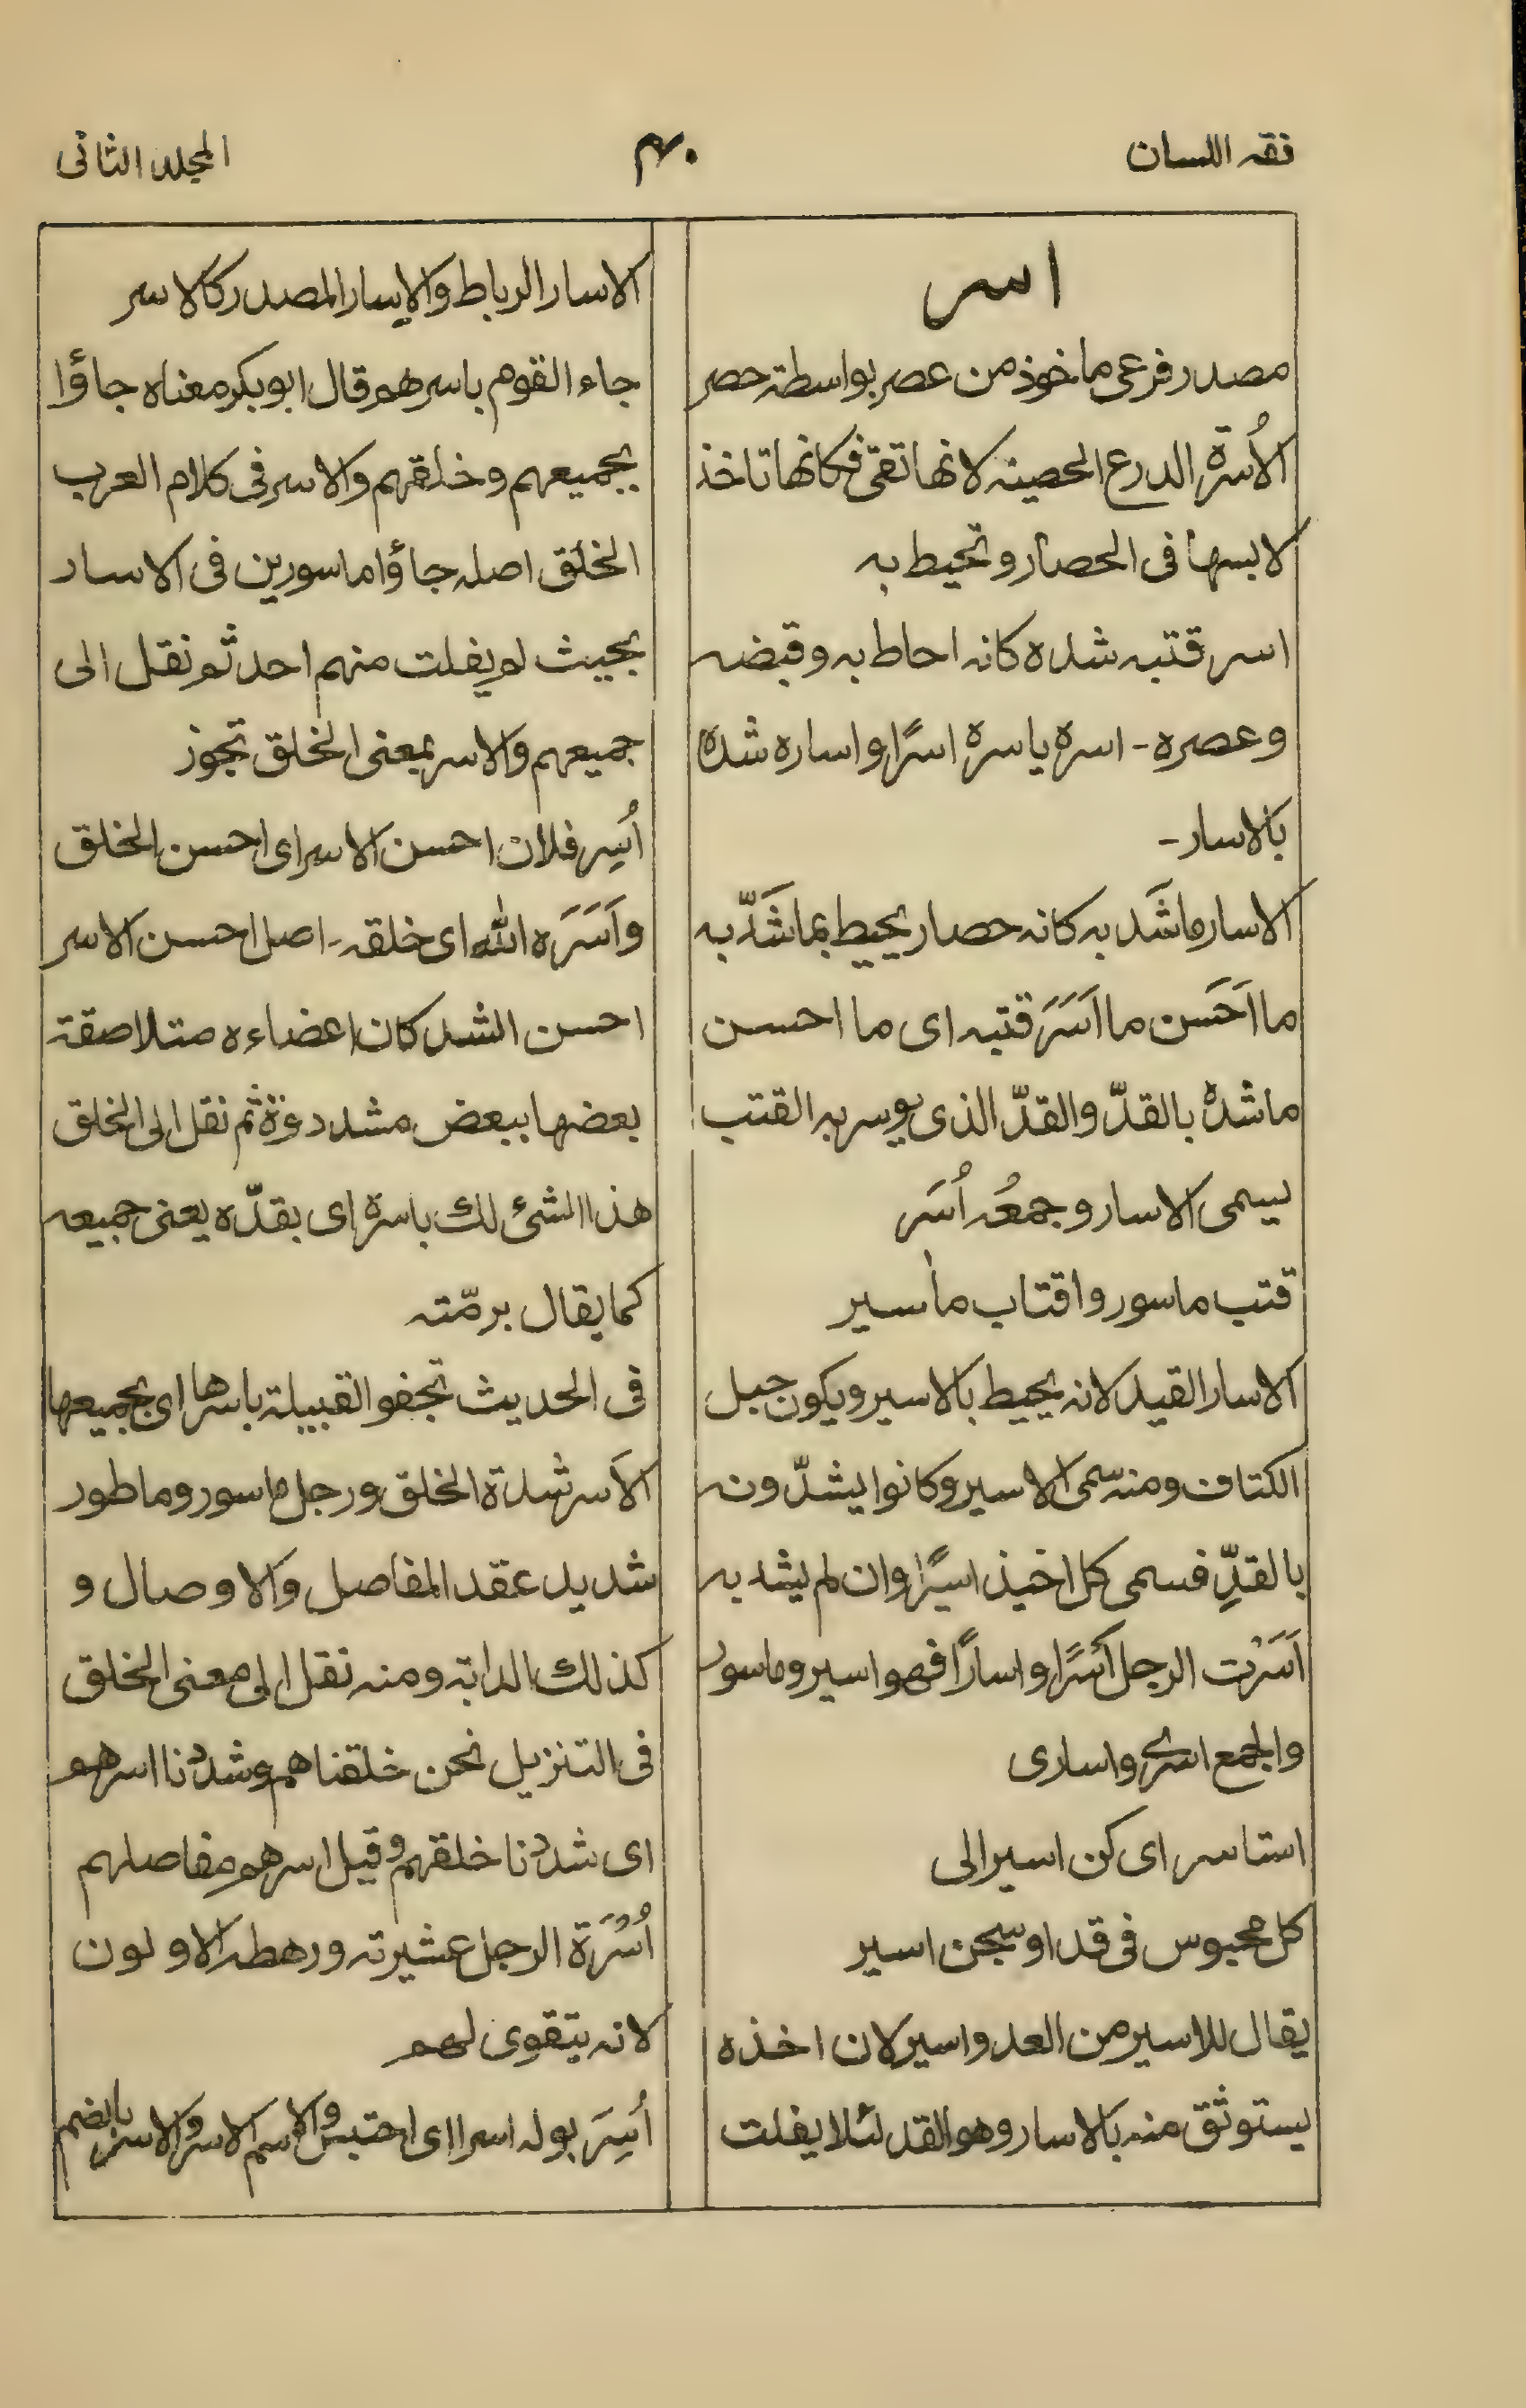 فقه اللسان
۴۰
المجلد الثانی
اسر
مصدر فرعی ماخوذ من عصر بواسطة حصر
الاُسرة الدرع الحصینه لانها تقی فکانها تاخذ
لابسها فی الحصار وتحیط به
اسر قتبه شده کانه احاط به وقبضه
وعصره - اسره یاسره اسرًا واساره شدهٗ
بالاسار -
الاسار ماشَد به کانه حصار یحیط بما شَدّ به
ما احَسن ما اَسَرَ قتبه ای ما احسن
ماشدهٗ بالقدّ والقدّ الذی یوسر به القتب
یسمی الاسار وجمعُه اُسَر
قتب ماسور واقتاب ماسیر
الاسار القید لانه یحیط بالاسیر ویکون حبل
الکتاف ومنه سمی الاسیر وکانوا یشدّونه
بالقدِّ فسمی کل اخیذ اسیرًا وان لم یشد به
اَسَرْت الرجل أسْرًا واسارًا فهو اسیر وماسور
والجمع اسریٰ واساری
استاسر ای کن اسیرا لی
کل محبوس فی قد او سجن اسیر
یقال للاسیر من العدو اسیر لان اخذه
یستوثق منه بالاسار وهو القد لئلا یفلت
الاسار الرباط والاِسار المصدر کالاسر
جاء القوم باسرهم قال ابوبکر معناه جاؤا
بجمیعهم وخلقهم والاسر فی کلام العرب
الخلق اصله جاؤا ماسورین فی الاسار
بحیث لو یفلت منهم احد ثم نقل الی
جمیعهم والاسر بمعنی الخلق تجوز
اُسِر فلان احسن الاسر ای احسن الخلق
واَسَرَه الله ای خلقه - اصل احسن الاسر
احسن الشد کان اعضاءه متلاصقة
بعضها ببعض مشدودة ثم نقل الی الخلق
هذا الشئ لک باسرة ای بقدّه یعنی جمیعه
کما یقال برمّته
فی الحدیث تجفو القبیلة باسرها ای بجمیعها
الاَسر شدة الخلق ورجل ماسور وماطور
شدید عقد المفاصل والاوصال و
کذلك الدابة ومنه نقل الی معنی الخلق
فی التنزیل نحن خلقناهم وشددنا اسرهم
ای شددنا خلقهم وقیل اسرهم مفاصلهم
اُسْرَة الرجل عشیرته ورهطه الاولون
لانه یتقوی لهم
اُسِرَ بوله اسرا ای احتبس والاسم الاسر والاسر بالضم